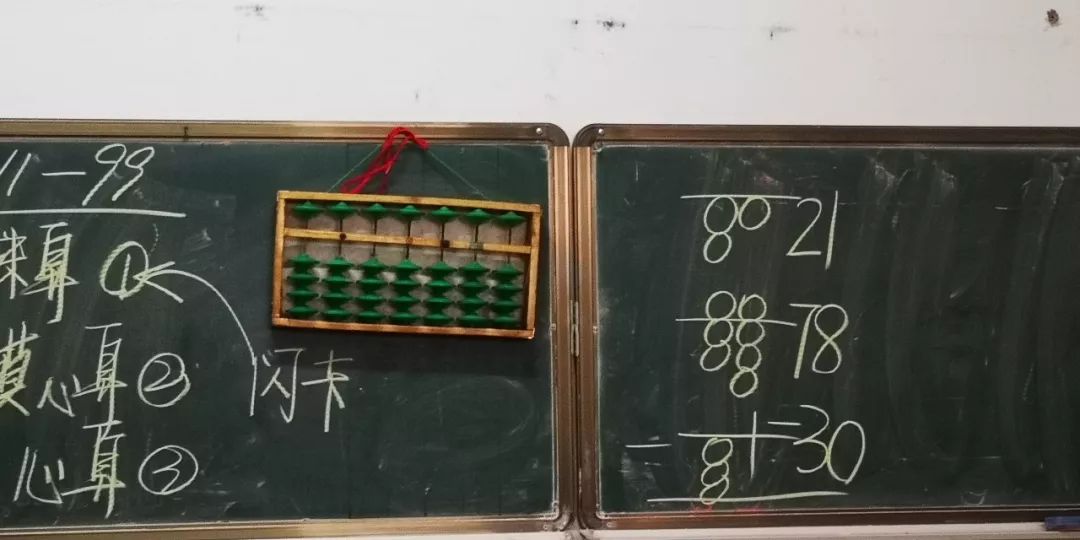 11-99
珠算①
模心算②
闪卡
心算③
21
78
-30